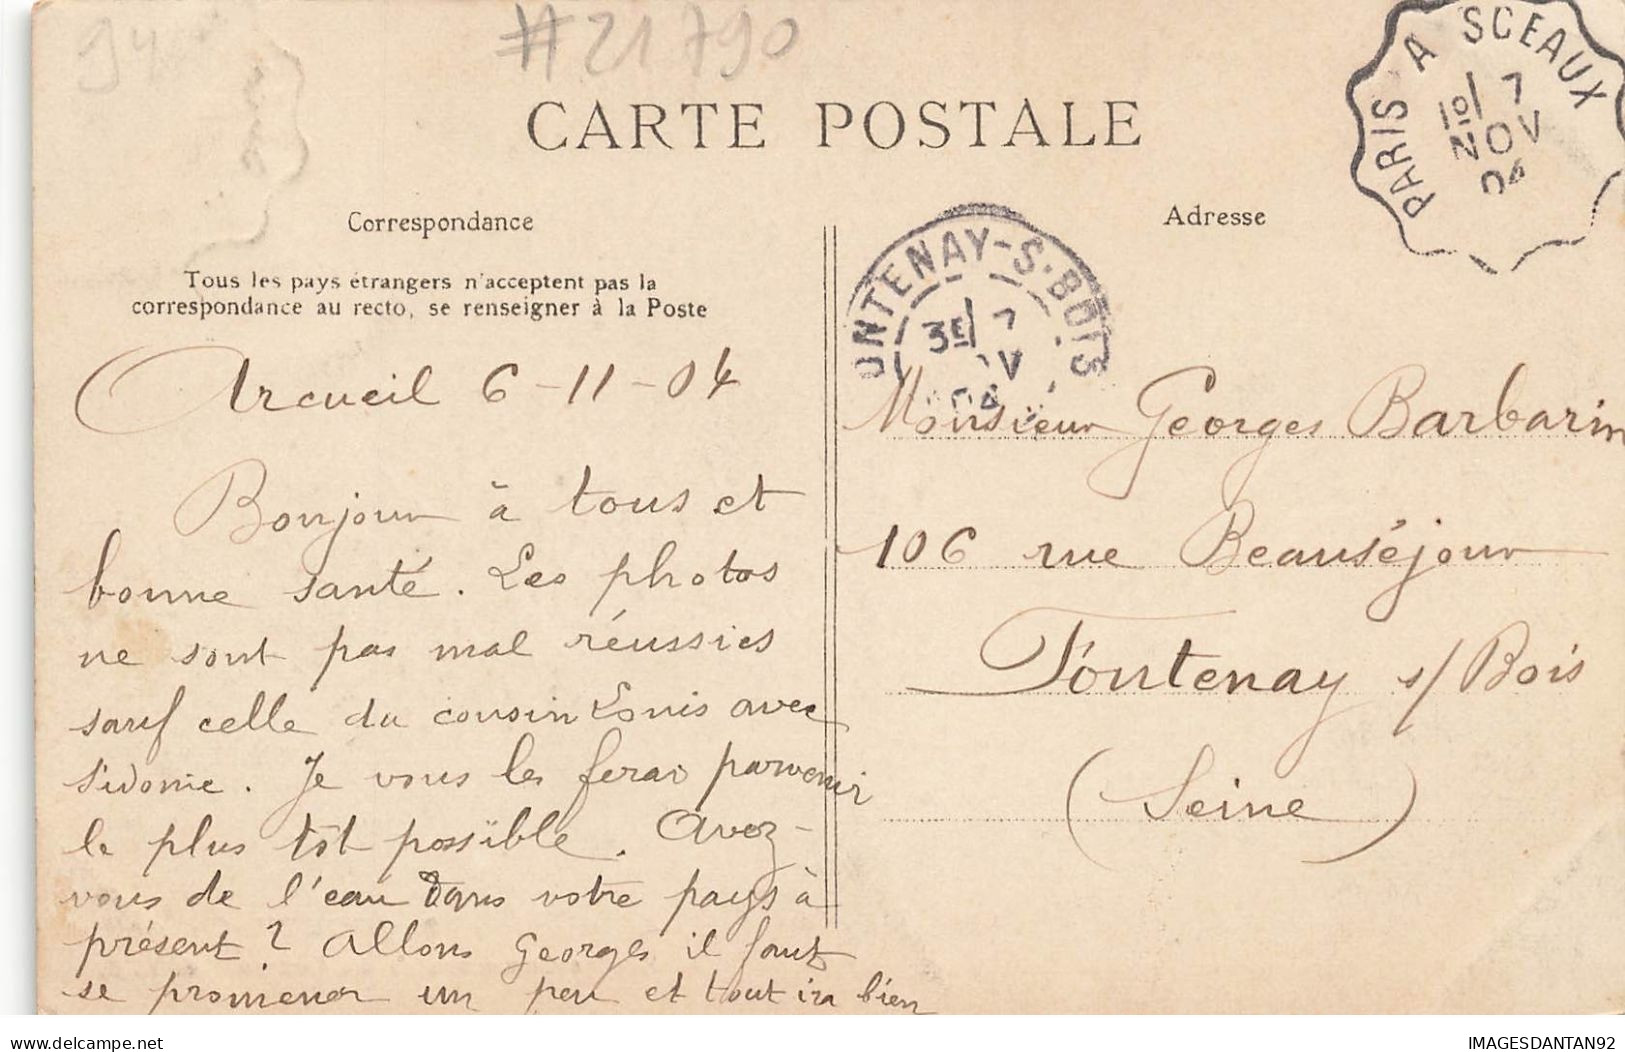 94
#21790
CARTE POSTALE
PARIS A SCEAUX
10E/ 7
NOV
04
Correspondance
Adresse
Tous les pays étrangers n'acceptent pas la
correspondance au recto, se renseigner à la Poste
ONTENAY-S-BOIS
3E/ 7
V
04
Arcueil 6-11-04
Bonjour à tous et
bonne santé. Les photos
ne sont pas mal réussies
sauf celle du cousin Louis avec
Sidonie. Je vous les ferai parvenir
le plus tôt possible. Avez-
vous de l'eau dans votre pays à
présent? Allons Georges il faut
se promener un peu et tout ira bien
Monsieur Georges Barbarin
106 rue Beauséjour
Fontenay s/ Bois
(Seine)
delcampe.net
IMAGESDANTAN92